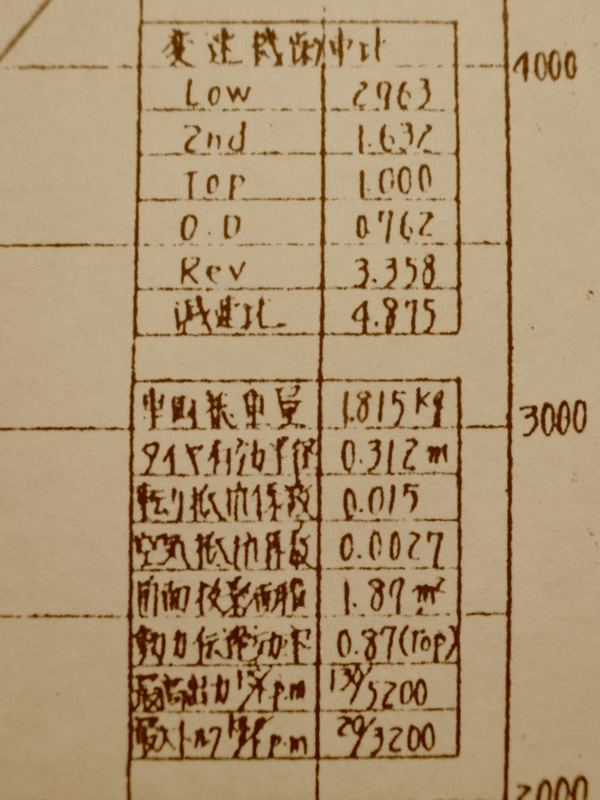 変速機歯車比
Low 2.963
2nd 1.632
Top 1.000
O.D 0.762
Rev 3.358
減速比 4.875
車両総重量 1.815kg
タイヤ有効半径 0.312m
転り抵抗係数 0.015
空気抵抗係数 0.0027
前面投影面積 1.87m²
動力伝達効率 0.87(Top)
最高出力 PS/r.p.m 130/5200
最大トルク r.p.m 20/3200
4000
3000
2000